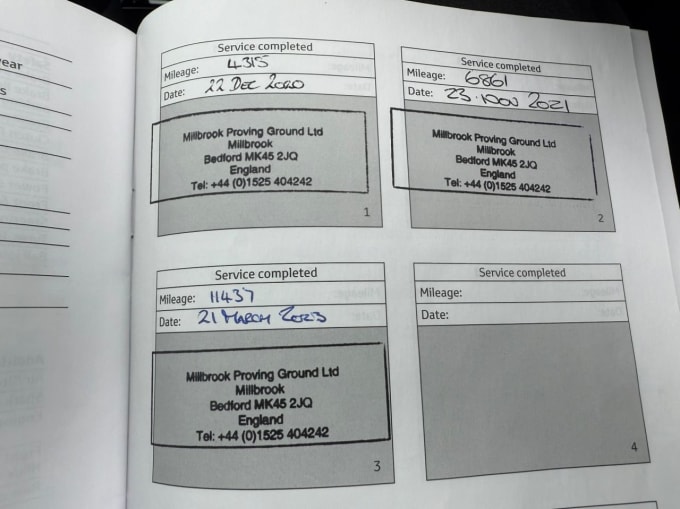 ear
s
Service completed
Mileage: 4315
Date: 22 DEC 2020
Millbrook Proving Ground Ltd
Millbrook
Bedford MK45 2JQ
England
Tel: +44 (0)1525 404242
1
Service completed
Mileage: 6861
Date: 23 NOV 2021
Millbrook Proving Ground Ltd
Millbrook
Bedford MK45 2JQ
England
Tel: +44 (0)1525 404242
2
Service completed
Mileage: 11437
Date: 21 MARCH 2023
Millbrook Proving Ground Ltd
Millbrook
Bedford MK45 2JQ
England
Tel: +44 (0)1525 404242
3
Service completed
Mileage:
Date:
4